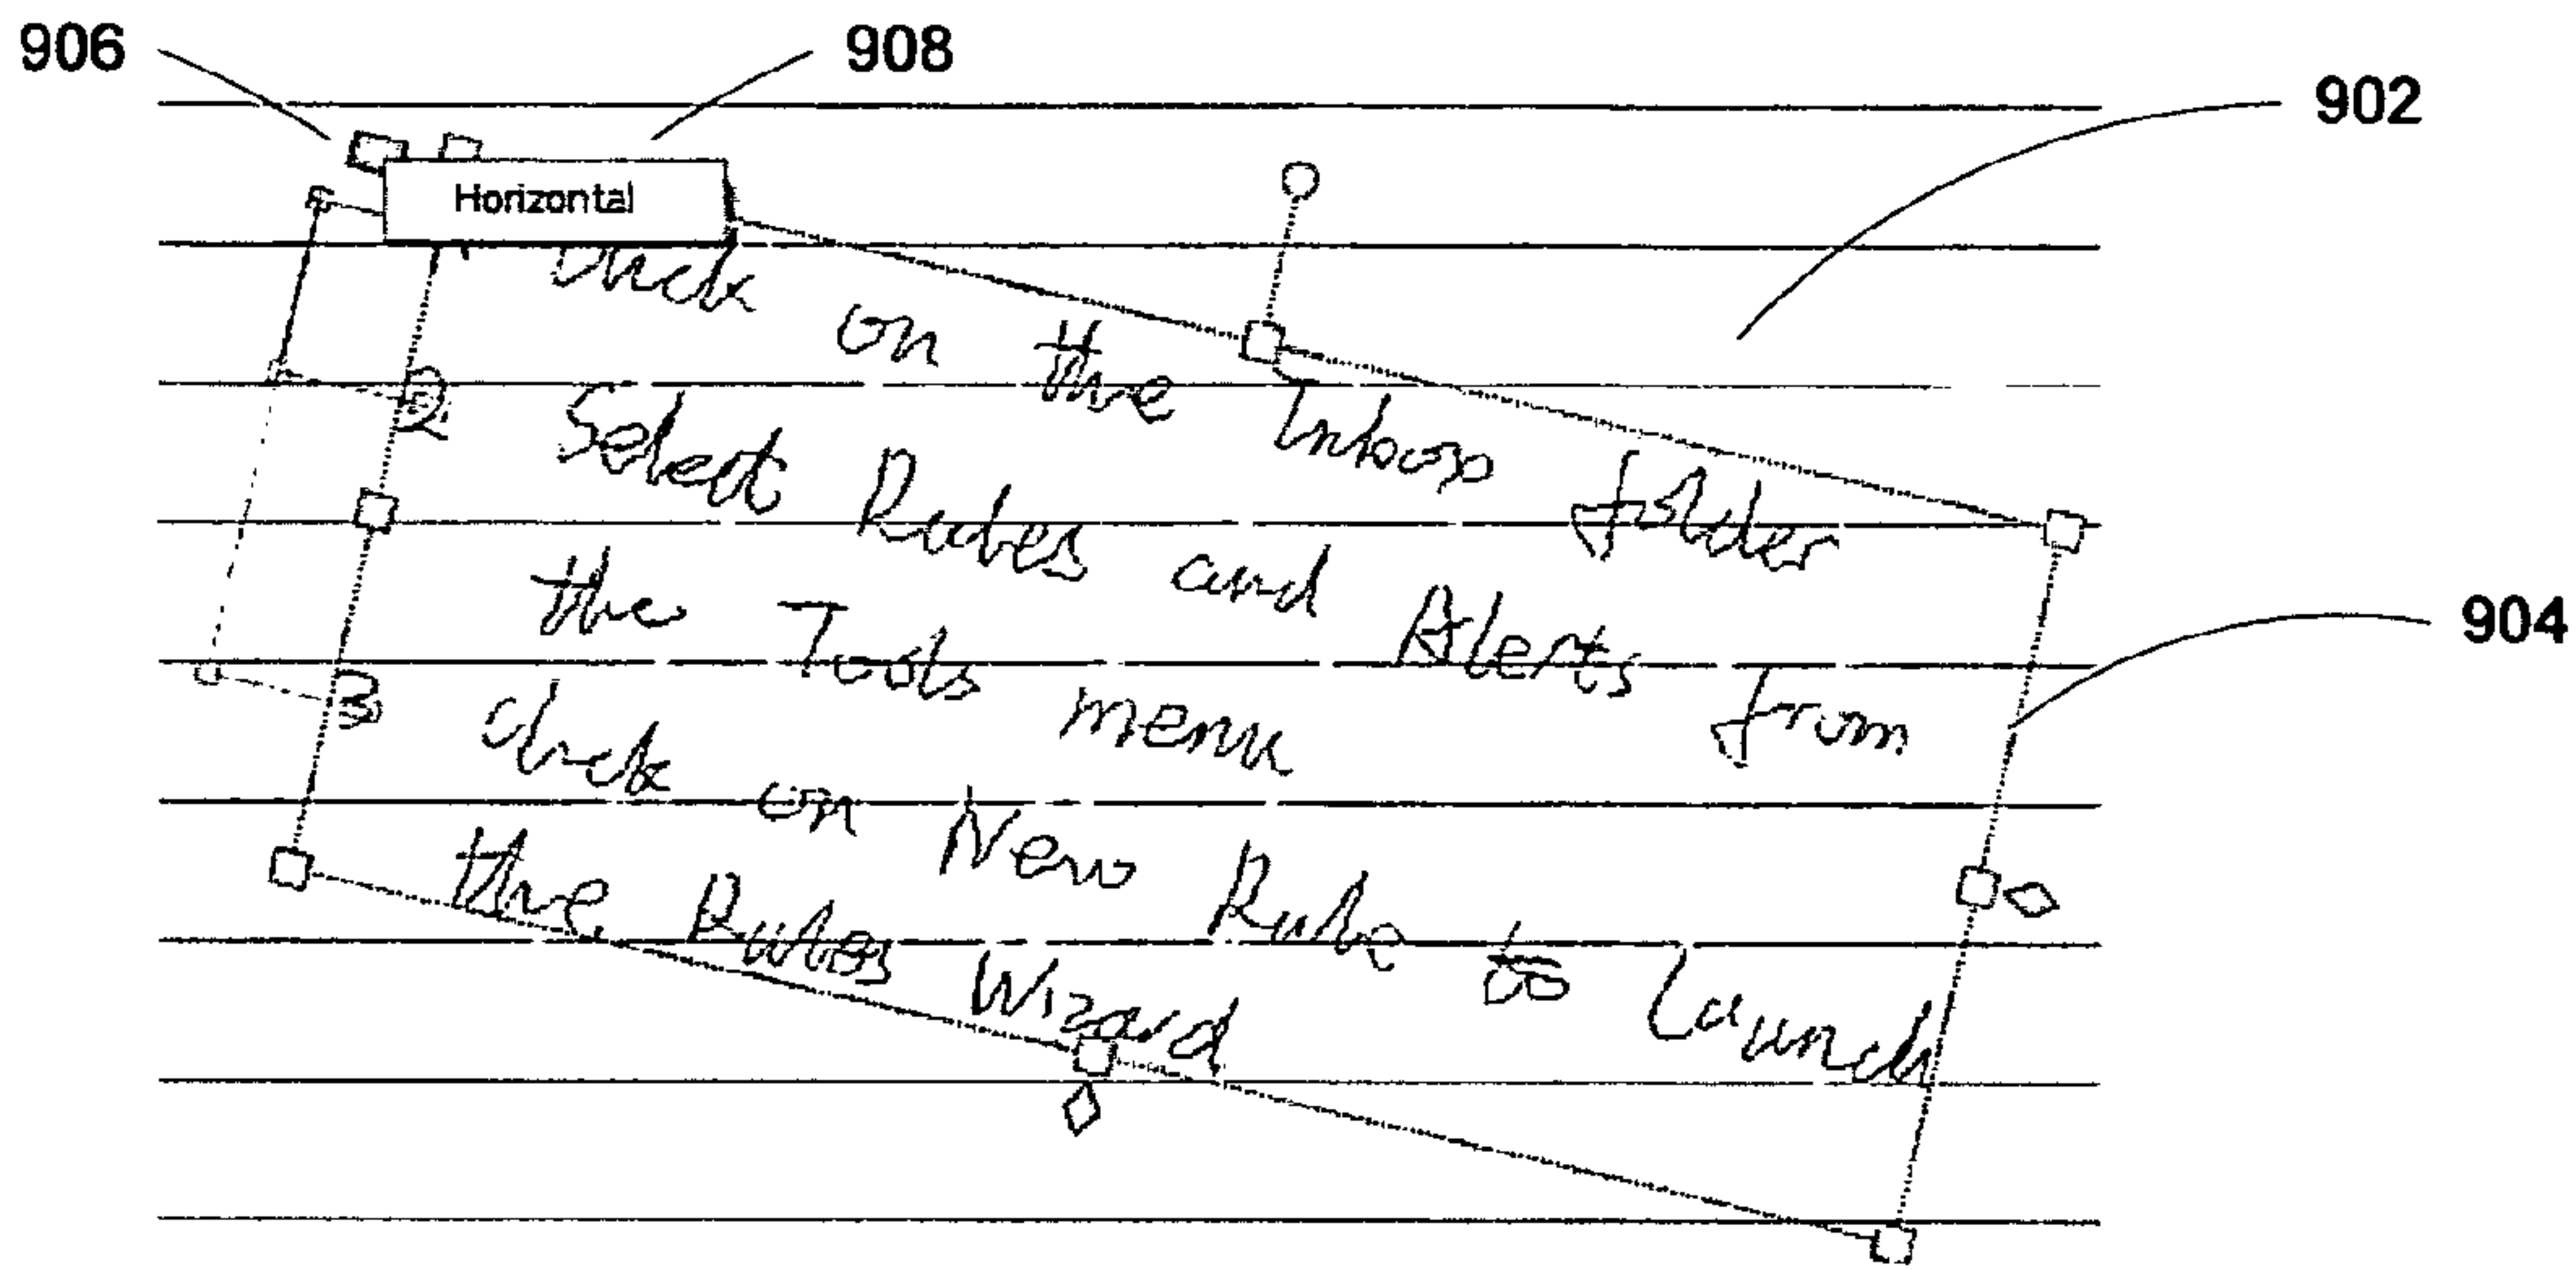 906
908
902
Horizontal
Click on the Inbox folder
2 Select Rules and Alerts from
the Tools menu
904
3 Click on New Rule to launch
the Rules Wizard